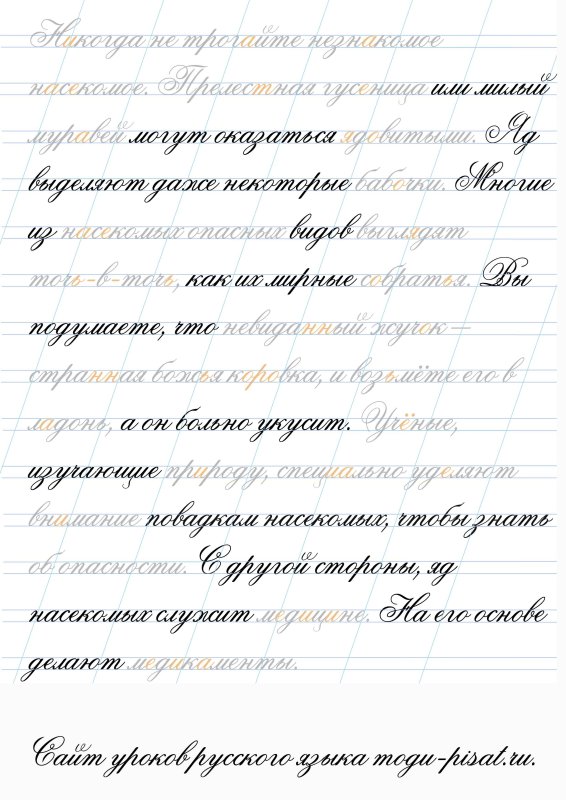 Никогда не трогайте незнакомое
насекомое. Прелестная гусеница или милый
муравей могут оказаться ядовитыми. Яд
выделяют даже некоторые бабочки. Многие
из насекомых опасных видов выглядят
точь-в-точь, как их мирные собратья. Вы
подумаете, что невиданный жучок –
странная божья коровка, и возьмёте его в
ладонь, а он больно укусит. Учёные,
изучающие природу, специально уделяют
внимание повадкам насекомых, чтобы знать
об опасности. С другой стороны, яд
насекомых служит медицине. На его основе
делают медикаменты.
Сайт уроков русского языка mogu-pisat.ru.